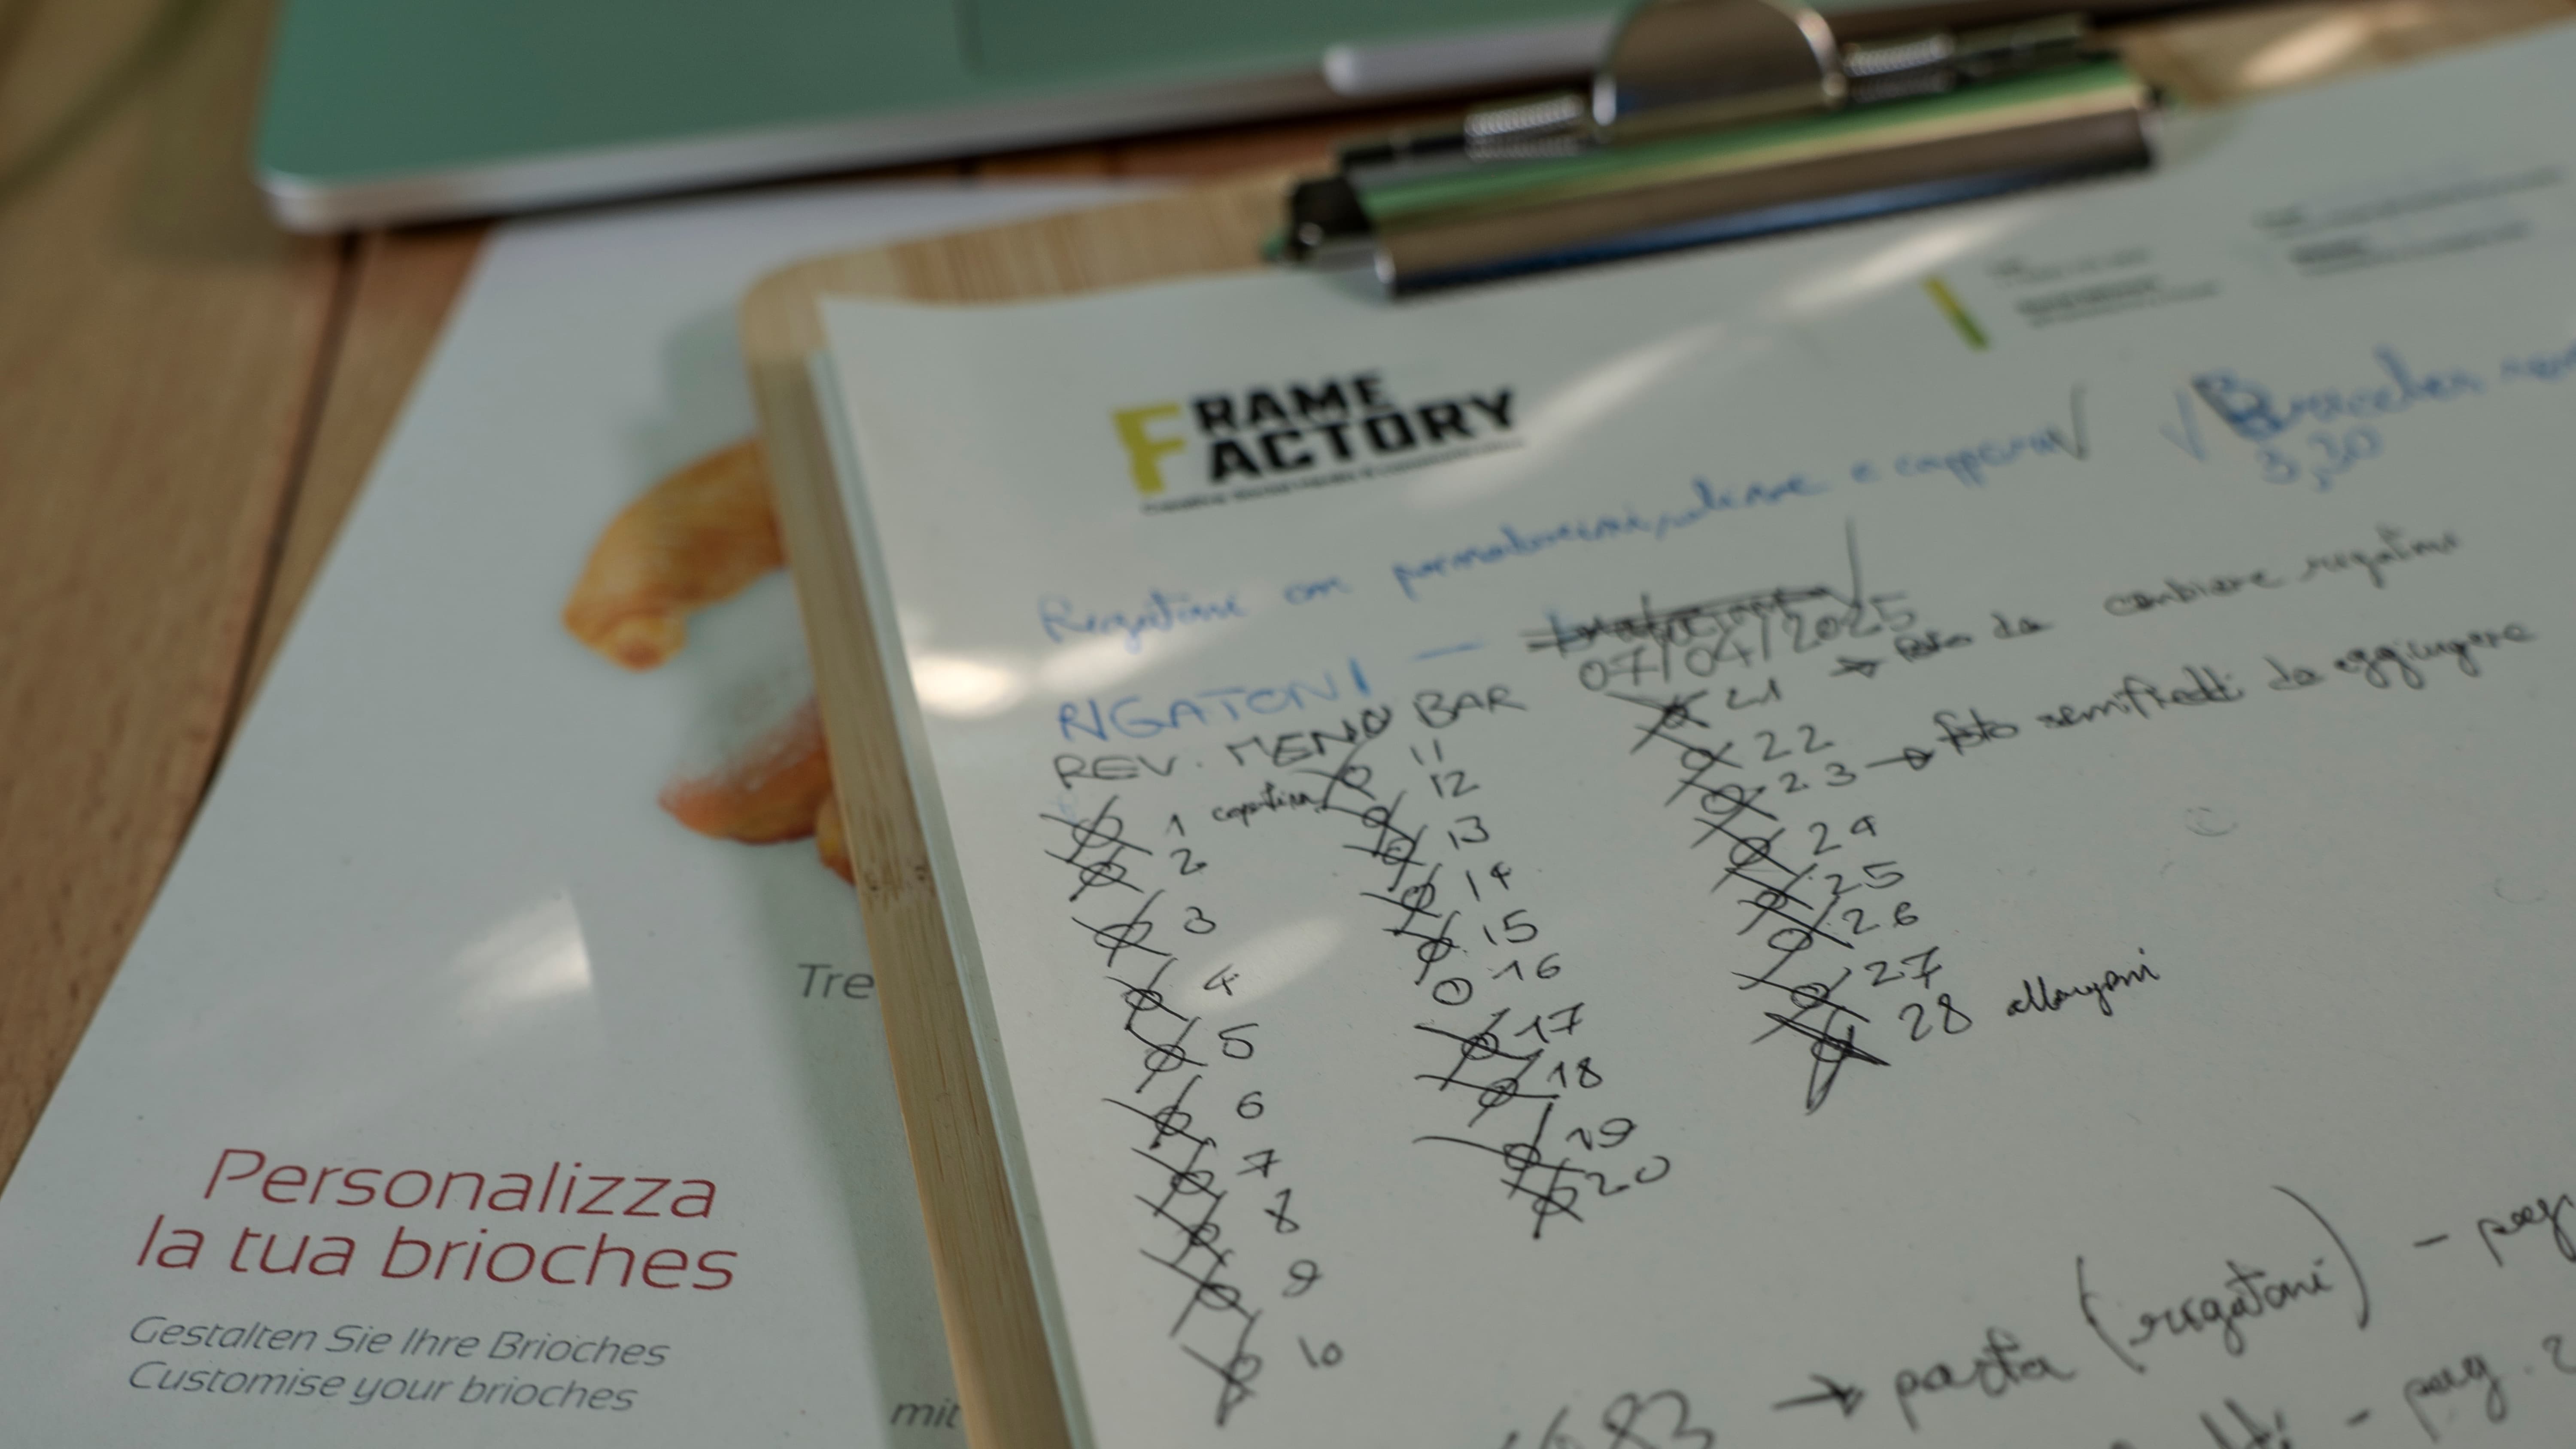 FRAME
FACTORY
Rigatoni con pomodorini, olive e capperi √ √ Bruschetta
3,30
RIGATONI —
07/04/2025
REV. MENÙ BAR
1 copertina
2
3
4
5
6
7
8
9
10
11
12
13
14
15
16
17
18
19
20
21 → foto da cambiare rigatoni
22
23 → foto semifreddi da aggiungere
24
25
26
27
28 allergeni
683 → pasta (rigatoni) - pag
- pag. 2
Tre
Personalizza
la tua brioches
Gestalten Sie Ihre Brioches
Customise your brioches
mit